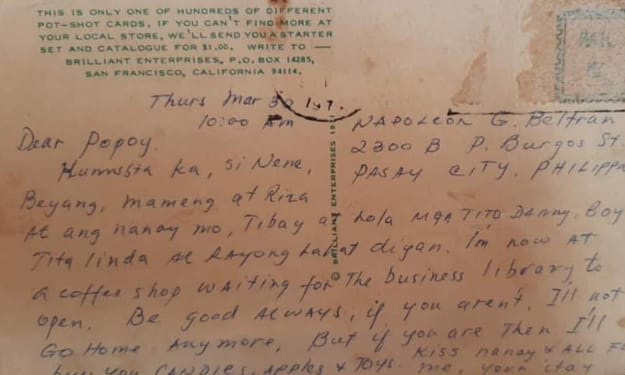 THIS IS ONLY ONE OF HUNDREDS OF DIFFERENT
POT-SHOT CARDS. IF YOU CAN'T FIND MORE AT
YOUR LOCAL STORE, WE'LL SEND YOU A STARTER
SET AND CATALOGUE FOR $1.00. WRITE TO —
BRILLIANT ENTERPRISES, P.O. BOX 14285,
SAN FRANCISCO, CALIFORNIA 94114.
MAIL
Thurs Mar 30 197
10:00 Am
Dear Popoy.
Kumusta ka, si Nene,
Beyang, mameng at Riza
At ang nanay mo, Tibay at Lola mga TITO Danny, Boy
Tita linda At diyan. I'm now AT
a coffee shop waiting for The business library to
open. Be good ALWAYS, if you aren't, I'll not
Go Home Anymore, But if you are Then I'll
buy you CANDIES, Apples & TOYS. Kiss nanay & ALL
me, your
NAPOLEON G. Beltran
2300 B P. Burgos St.
PASAY CITY, PHILIPP
© BRILLIANT ENTERPRISES 197